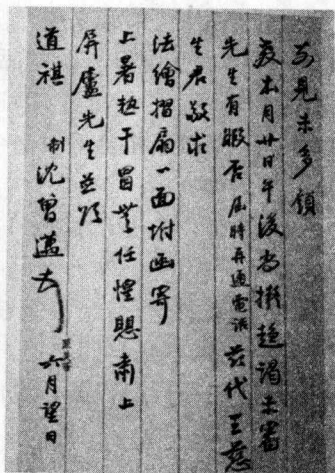 見未多領
教本月廿日午後尚擬趨謁未審
先生有暇否屆時再通電話茲代王慈
生君敬求
法繪摺扇一面坿函寄
上暑熱干冒無任惶肅上
屏廬先生並頌
道祺 制沈曾邁 六月望日